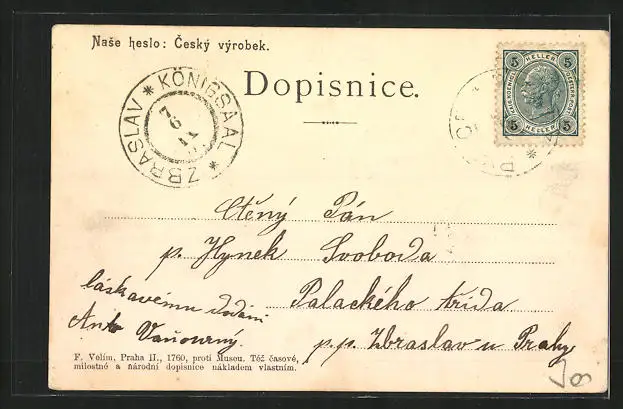 Naše heslo: Český výrobek.
Dopisnice.
5 HELLER 5
5 HELLER 5
ZBRASLAV * KÖNIGSAAL *
7
6
Ctěný Pán
p. Hynek Svoboda
láskavému dodání
Palackého třída
Ant. Vaňourný.
p.p. Zbraslav u Prahy
F. Velím, Praha II., 1760, proti Museu. Též časové,
milostné a národní dopisnice nákladem vlastním.